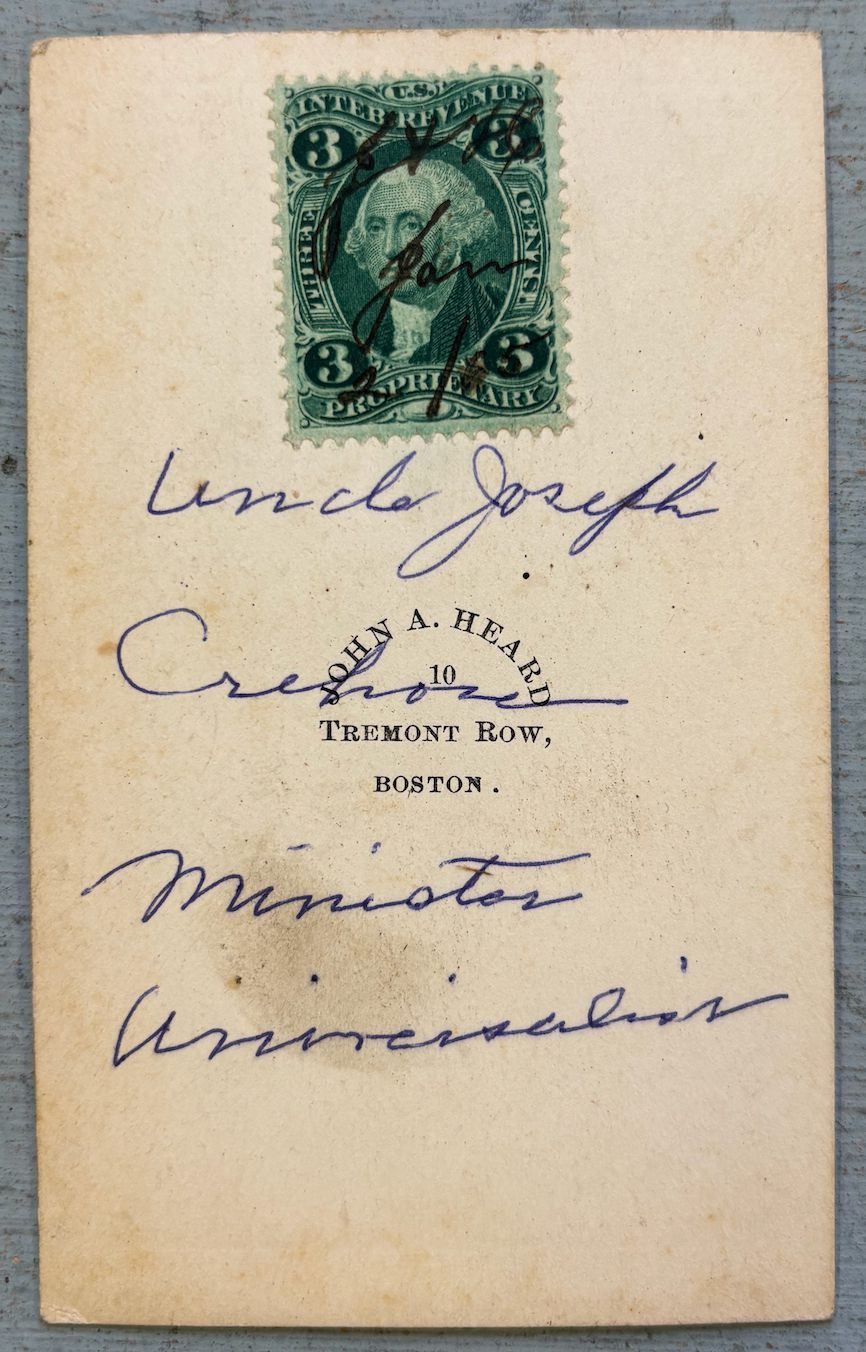 U.S.
INTER. REVENUE
3 3
THREE CENTS
Jan
3 3
2 / 65
PROPRIETARY
Uncle Joseph
JOHN A. HEARD
10
Crehore
TREMONT ROW,
BOSTON.
Minister
Universalist